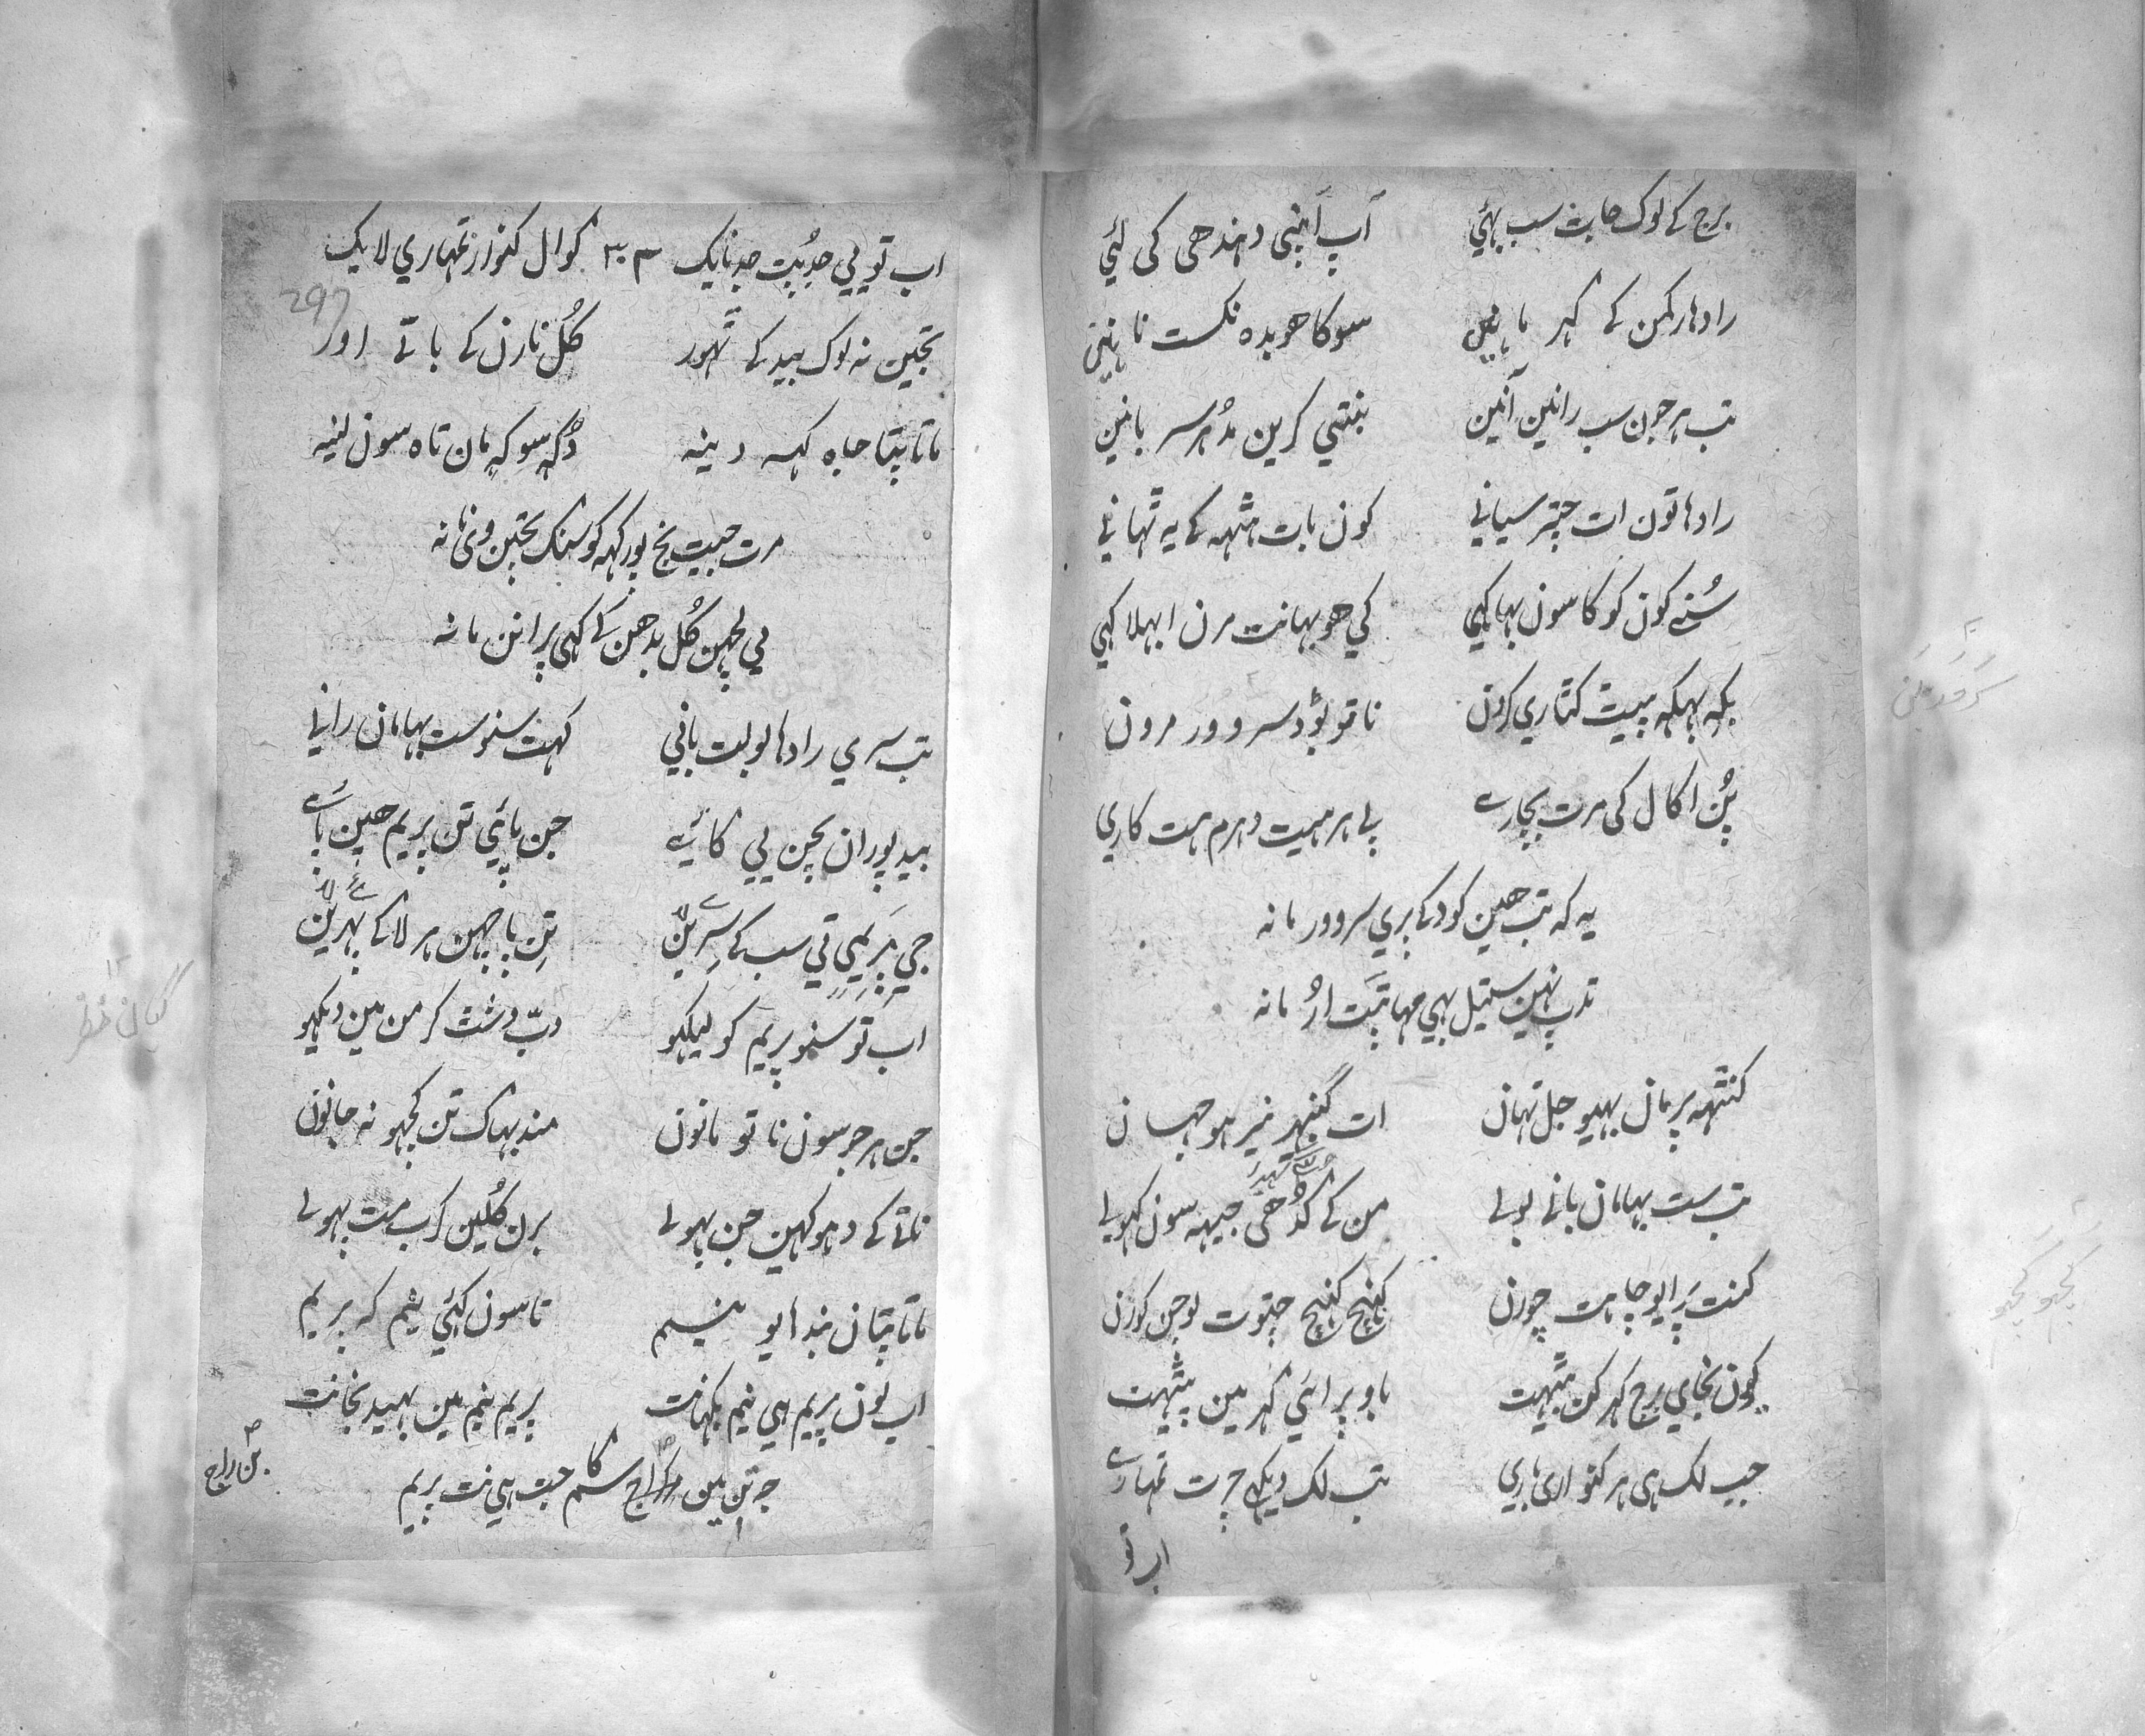 برج کے لوک جات سب بھئي آپ اَپنی دهندهی کی لئي
رادها رکمن کے گہر ماہیں سو کا هو بده نکست ناہیں
تب ہر جون سب رانین آنین بنتي کرین مدُہر سر بانین
رادها تون ات چتر سیاني کون بات ہٹہہ کے یہ ٹہاني
سُنے کون کو کا سون بہاکہي کي هو بہانت مرن ابہلاکہي
بکہ بہکہ پیٹ کٹاري کرون ناتو بُوڈ سرور مرون
پُن اکال کی مرت بچارے پے ہر ہیت دہرم ہت کاري
یہ کہ تب هین کود کے پري سرور مانہ
تدپ نہین سیتل بہي مہا تپَت اُر مانہ
کنٹہہ پرمان بہیو جل تہان ات گنبہر نیر ہو جہان
تب ست بہامان بانے بولے من کے کُڈهی جیبہہ سون کہولے
کنت پَرایو چاہت چورن کہنچ کہنچ چتوت لوچن کورن
کون نچاي برج گہر کن بیٹہت باو پرائي گہر مین پیٹہت
جب لک ہی ہر کنوار ی ہاري تب لک دیکہے چرت تمہارے
اب تو
اب تو یي جدُپت جدنایک ۳۰۳ گوال گنوار تمہاري لایک
297
تجین نہ لوک بید کے ٹہور کُل نارن کے باتے اور
ماتا پتا جاہ کہہ دینہ دُکہہ سوکہہ مان تاہ سون لینہ
مرت جیت نج پور کہہ کو سنگ تجین وی نانہ
یي لچہن کُل بدهن کے کہی پرانن مانہ
تب سري رادها بولت باني کہت سنو ست بہامان راني
بید پوران بچن یي گائے جن پائي تن پریم هین پائے
جي پَریمي تي سب کے سِرین تِن پاچہن ہر لاگے پہرین
اب تو سنو پریم کو لیکہو دبّ دِشٹ کر من مین دیکہو
جن ہر جو سون ناتو مانون مند بہاگ تن کچہو نہ جانون
ناتے کے دہوکہین جن بہولے برن کُلین گرب مت پہولے
ماتا پتان بندایو نیم تا سون کہئي نیم کہ پریم
اب لون پریم ہي نیم بکہانت پریم نیم مین بہید نجانت
جو تن مین راج سکام جت ہي نت پریم
بن راج